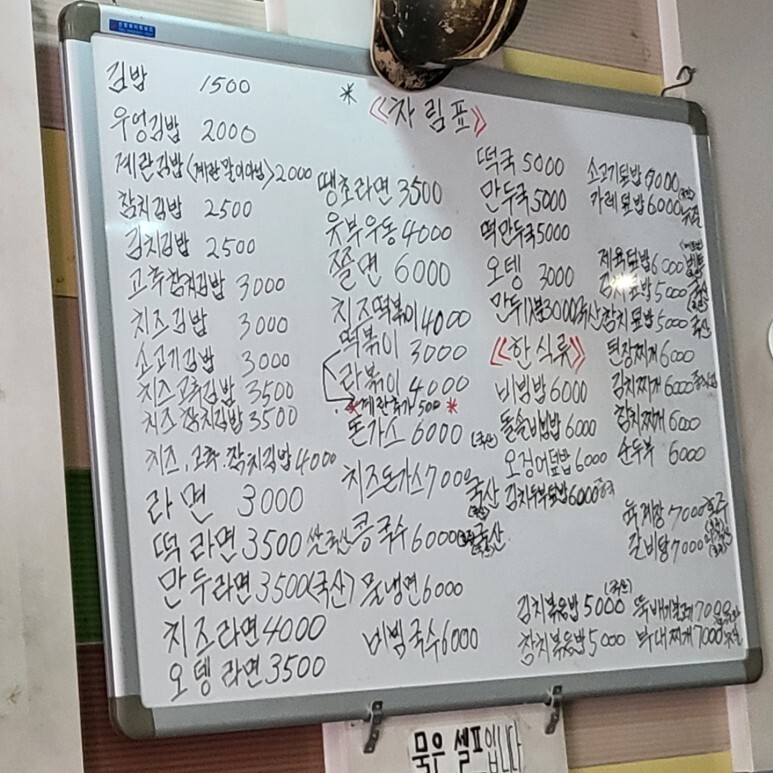 * 《차림표》
김밥 1500
우엉김밥 2000
계란김밥<계란말이아님>2000
참치김밥 2500
김치김밥 2500
고추참치김밥 3000
치즈김밥 3000
소고기김밥 3000
치즈고추김밥 3500
치즈참치김밥 3500
치즈.고추.참치김밥 4000
라면 3000
떡라면 3500 쌀국산
만두라면 3500(국산)
치즈라면 4000
오뎅라면 3500
땡초라면 3500
유부우동 4000
쫄면 6000
치즈떡볶이 4000
떡볶이 3000
라볶이 4000
*계란추가 500 *
돈가스 6000 (국산)
치즈돈가스 7000 국산
콩국수 6000 국산
물냉면 6000
비빔국수 6000
떡국 5000
만두국 5000
떡만두국 5000
오뎅 3000
만두1인분 3000 국산
《한식류》
비빔밥 6000
돌솥비빔밥 6000
오징어덮밥 6000
김치두부덮밥 6000 중국
김치볶음밥 5000 (국산)
참치볶음밥 5000
소고기덮밥 6000
카레덮밥 6000
제육덮밥 6000
김치덮밥 5000
참치덮밥 5000
된장찌개 6000
김치찌개 6000
참치찌개 6000
순두부 6000
육개장 7000 호주
갈비탕 7000
뚝배기불고기 7000
부대찌개 7000
물은 셀프입니다